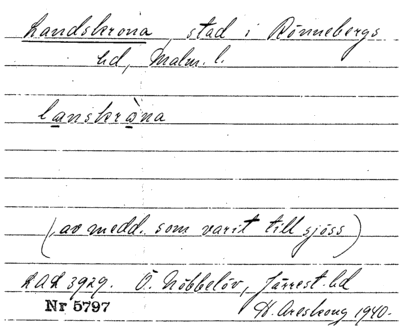 Landskrona, stad i Rönnebergs
hd, Malm. l.
lanskràna
(av medd. som varit till sjöss)
LAL 3929. Ö. Nöbbelöv, Järrest. hd
Nr 5797
H. Areskoug 1940.